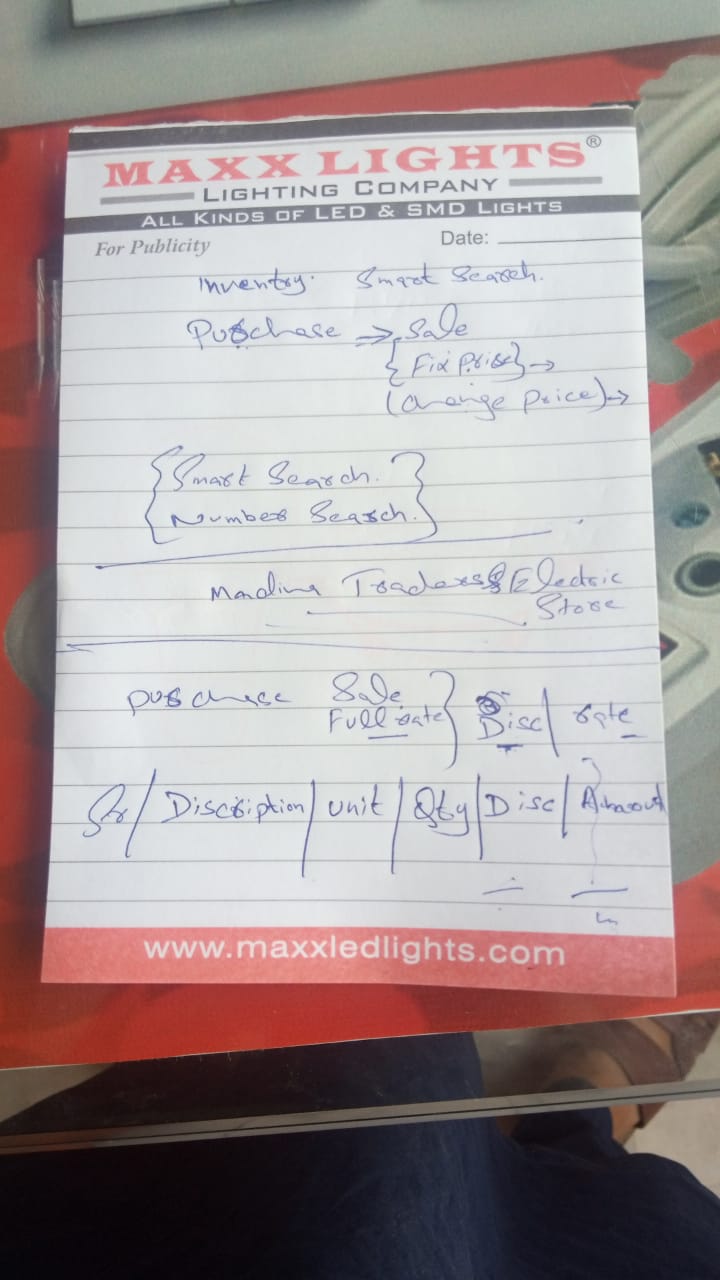 MAXX LIGHTS®
LIGHTING COMPANY
ALL KINDS OF LED & SMD LIGHTS
For Publicity Date:
Inventry. Smart Search.
Purchase => Sale
{Fix Price} →
(Change Price) →
{Smart Search.}
{Number Search.}
Traders & Electric
Store
purchase Sale
Full rate} Disc | rate
Sr / Discription | unit | Qty | Disc |
www.maxxledlights.com